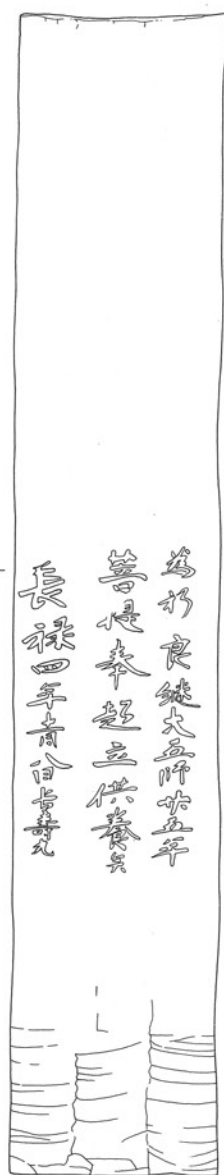 為祈良継大五師廿五年
菩提奉起立供養矣
長禄四年 八日 壽丸